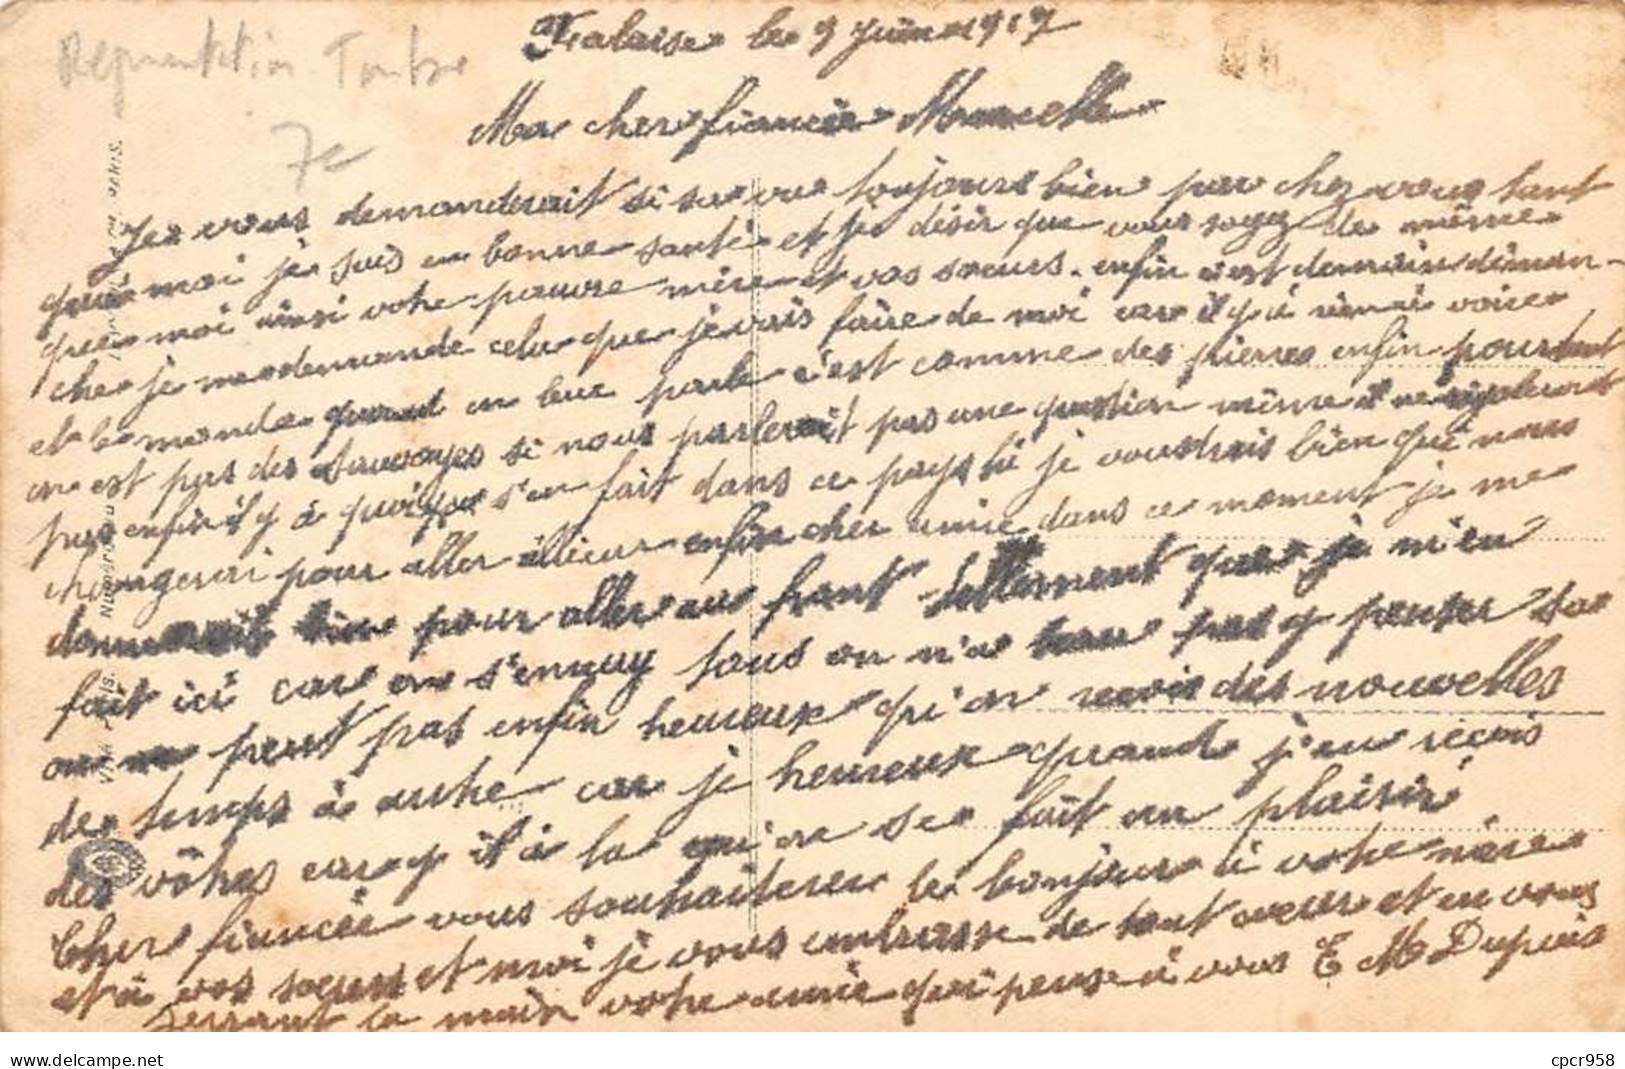 Falaise le 9 Juin 1917
7e
Ma cher fiancée Marcelle
Je vous demanderait si sa va toujours bien par chez vous tant
qu'a moi je suis en bonne santé et je désir que vous soyez de même
que moi ainsi votre pauvre mère et vos soeurs. enfin c'est demain diman-
che je me demande celu que je vais faire de moi car il y à rien à voire
et le monde quand on leur parle c'est comme des pierres enfin pourtant
on est pas des sauvages si nous parlerait pas une question même il ne
pas enfin il y à quoique s'en fait dans ce pays si je voudrais bien que nous
changerai pour aller allieur enfin cher amie dans ce moment je me
pour aller au front tellement que je m'en
fait ici car on s'ennuy tous on n'a pas y penser sa
on peut pas enfin heureux qu'on reçois des nouvelles
de temps à autre car je heureux quand j'en reçois
des vôtres car y il à la qu'on se fait un plaisir
Cher fiancée vous souhaiterer le bonjour à votre mère
et à vos soeurs et moi je vous embrasse de tout coeur et en vous
serrant la main votre amie qui pense à vous E M Dupuis
PARIS.
cpcr958
delcampe.net